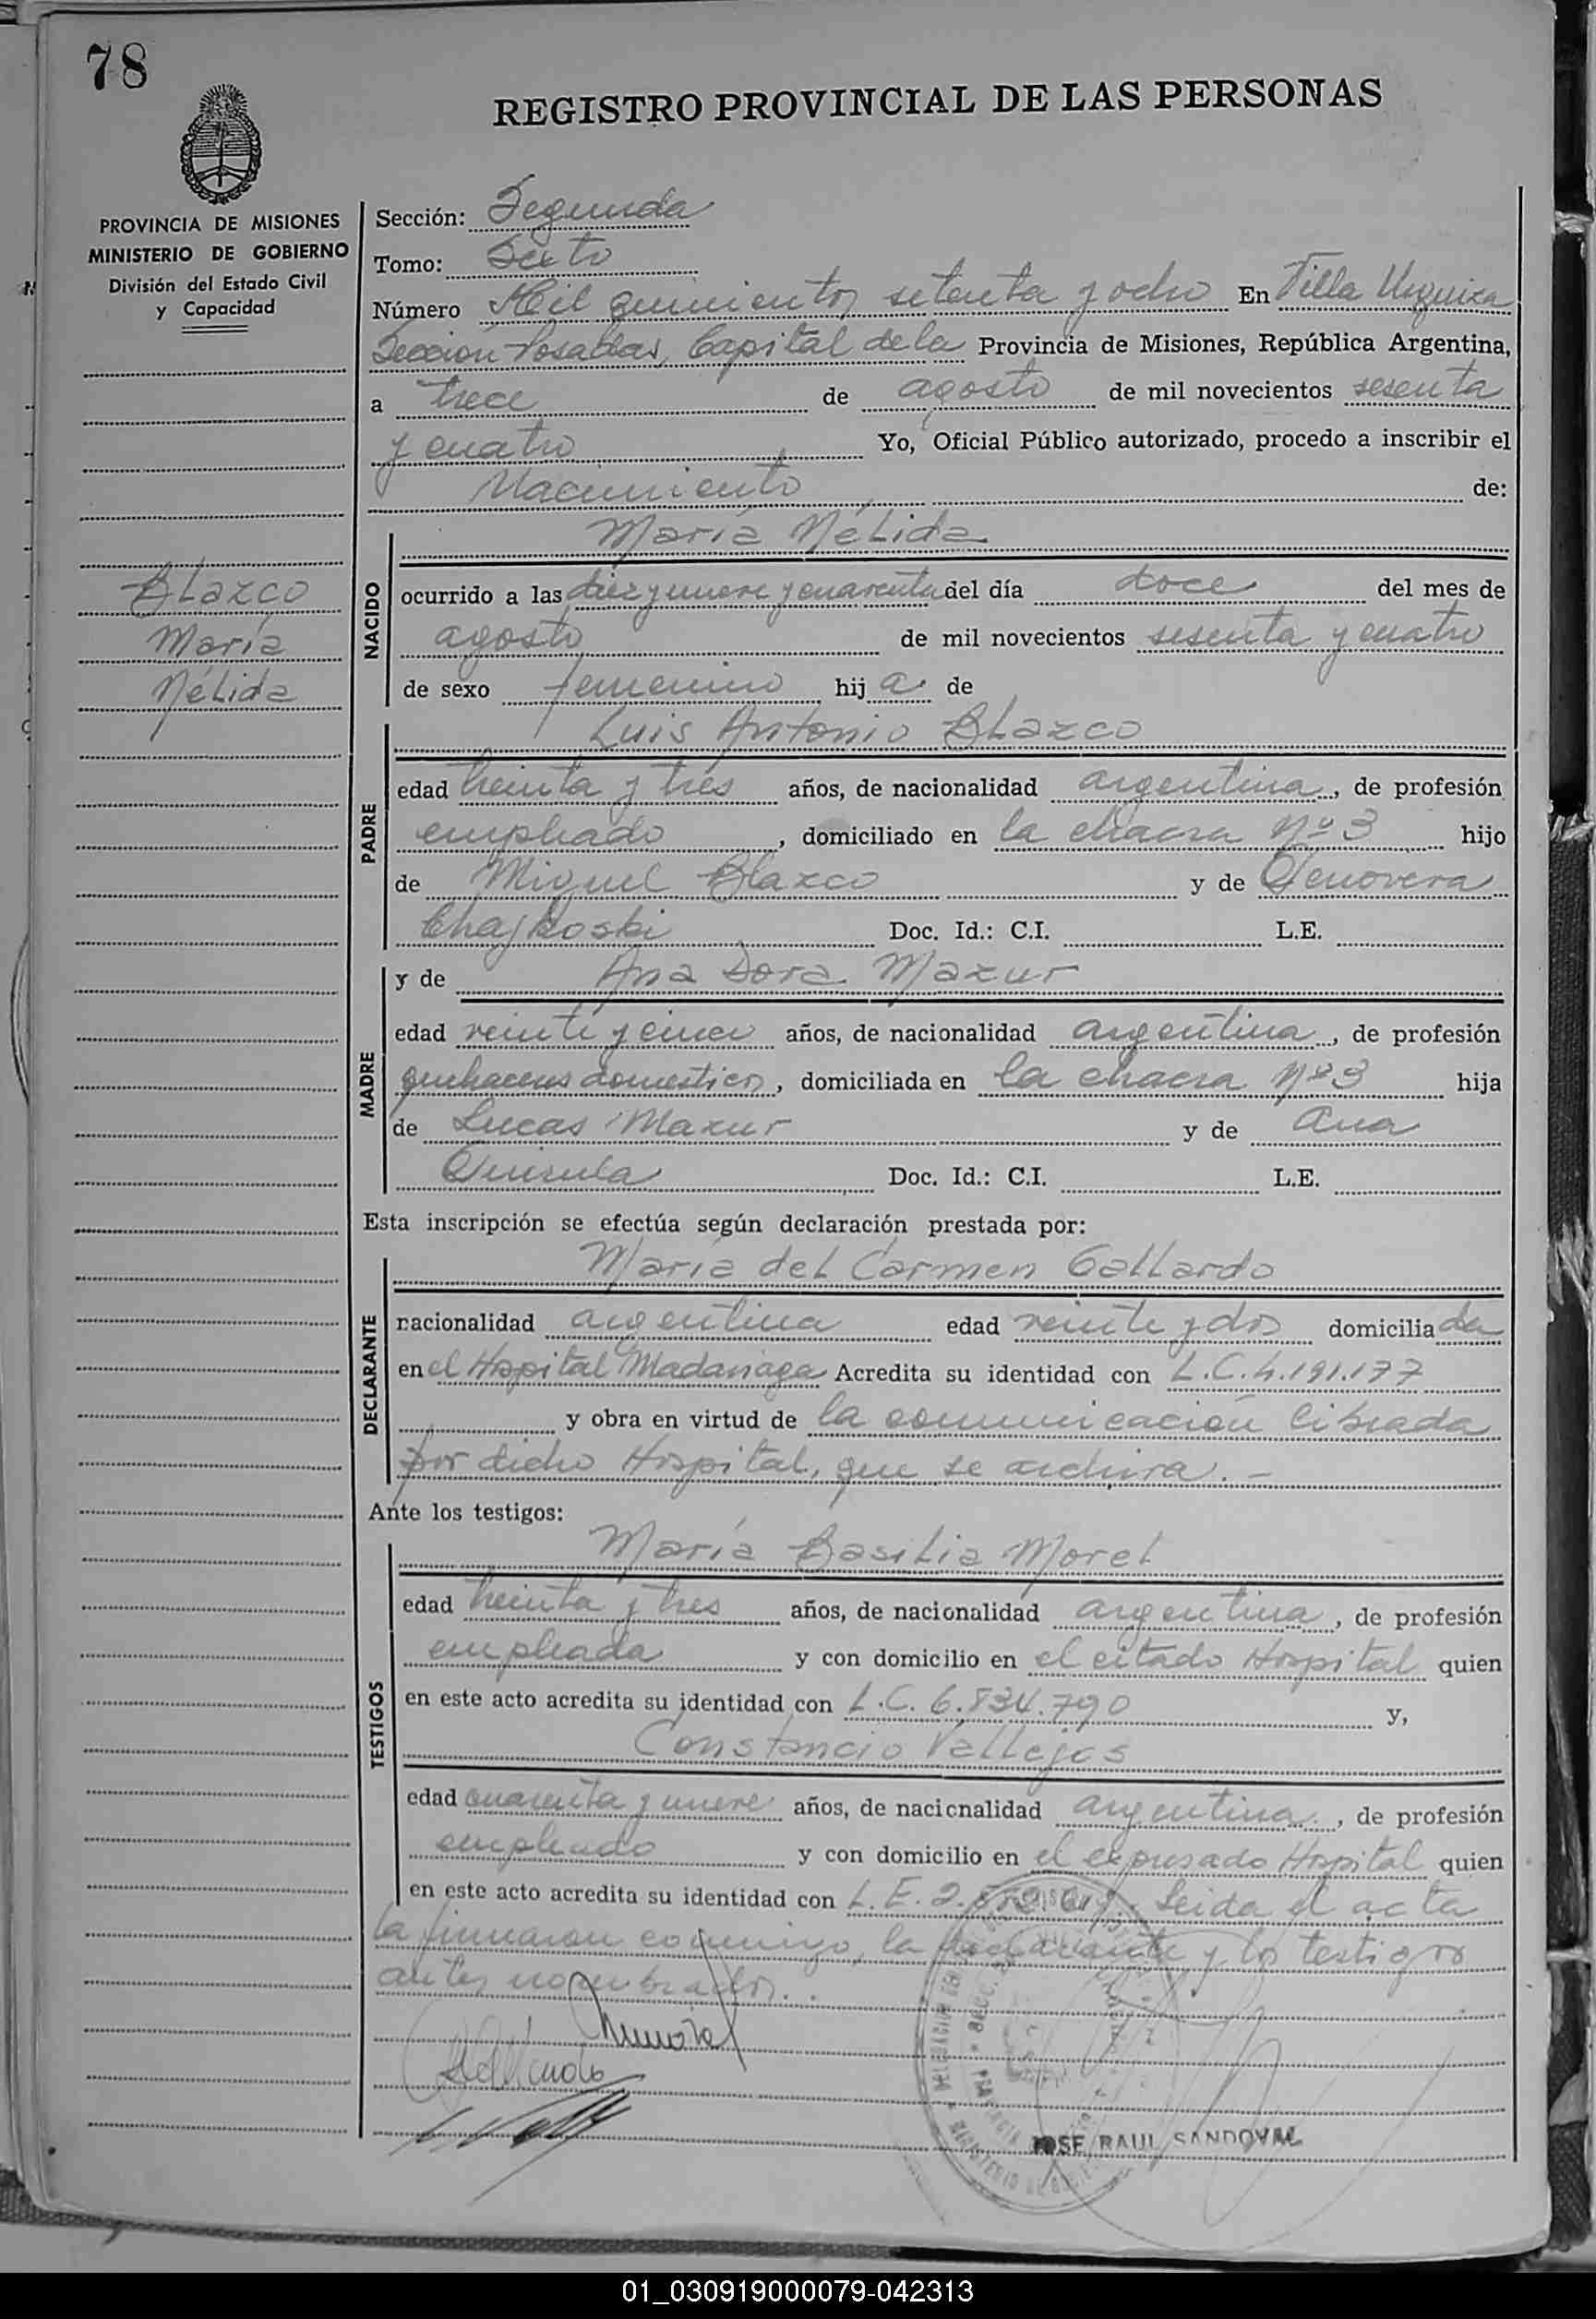 78
REGISTRO PROVINCIAL DE LAS PERSONAS
PROVINCIA DE MISIONES
MINISTERIO DE GOBIERNO
División del Estado Civil
y Capacidad
Sección: Segunda
Tomo: Sexto
Número Mil quinientos setenta y ocho En Villa Urquiza
Sección Posadas, Capital de la Provincia de Misiones, República Argentina,
a trece de agosto de mil novecientos sesenta
y cuatro Yo, Oficial Público autorizado, procedo a inscribir el
Nacimiento de:
María Nélida
Blazco
María
Nélida
NACIDO
ocurrido a las diez y nueve y cuarenta del día doce del mes de
agosto de mil novecientos sesenta y cuatro
de sexo femenino hija de
PADRE
Luis Antonio Blazco
edad treinta y tres años, de nacionalidad argentina, de profesión
empleado, domiciliado en la chacra Nº 3 hijo
de Miguel Blazco y de Genoveva
Chajkoski Doc. Id.: C.I. L.E.
MADRE
y de Ana Dora Mazur
edad veinte y cinco años, de nacionalidad argentina, de profesión
quehaceres domésticos, domiciliada en la chacra Nº 3 hija
de Lucas Mazur y de Ana
Doc. Id.: C.I. L.E.
Esta inscripción se efectúa según declaración prestada por:
DECLARANTE
María del Carmen Gallardo
nacionalidad argentina edad veinte y dos domiciliada
en el Hospital Madariaga Acredita su identidad con L.C. 4.191.177
y obra en virtud de la comunicación librada
por dicho Hospital, que se archiva. -
Ante los testigos:
TESTIGOS
María Basilia Morel
edad treinta y tres años, de nacionalidad argentina, de profesión
empleada y con domicilio en el citado Hospital quien
en este acto acredita su identidad con L.C. 6.834.790 y,
Constancio Vallejos
edad cuarenta y nueve años, de nacionalidad argentina, de profesión
empleado y con domicilio en el expresado Hospital quien
en este acto acredita su identidad con L.E. Leida el acta
la firmaron conmigo, la declarante y los testigos
antes nombrados..
JOSE RAUL SANDOVAL
01_030919000079-042313